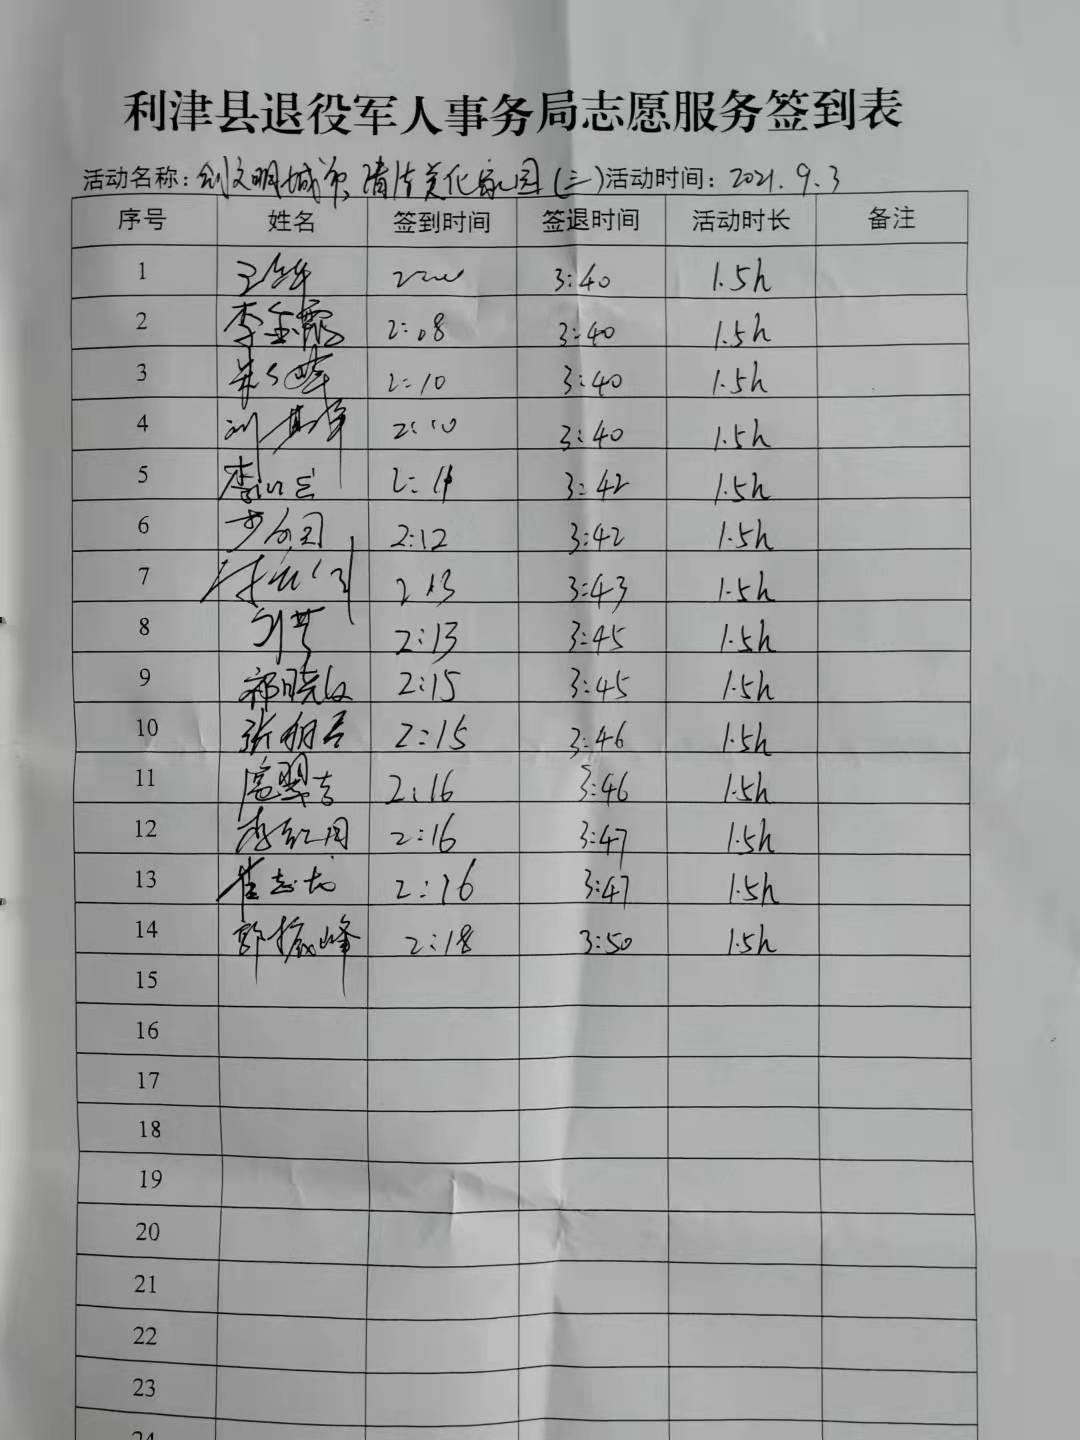 利津县退役军人事务局志愿服务签到表
活动名称: 创文明城市,清洁美化家园(三)活动时间: 2021.9.3
序号 姓名 签到时间 签退时间 活动时长 备注
1 3:40 1.5h
2 李金霞 2:08 3:40 1.5h
3 2:10 3:40 1.5h
4 2:10 3:40 1.5h
5 2:11 3:42 1.5h
6 2:12 3:42 1.5h
7 2:13 3:43 1.5h
8 2:13 3:45 1.5h
9 2:15 3:45 1.5h
10 2:15 3:46 1.5h
11 2:16 3:46 1.5h
12 2:16 3:47 1.5h
13 崔志 2:16 3:47 1.5h
14 郭振峰 2:18 3:50 1.5h
15
16
17
18
19
20
21
22
23
24